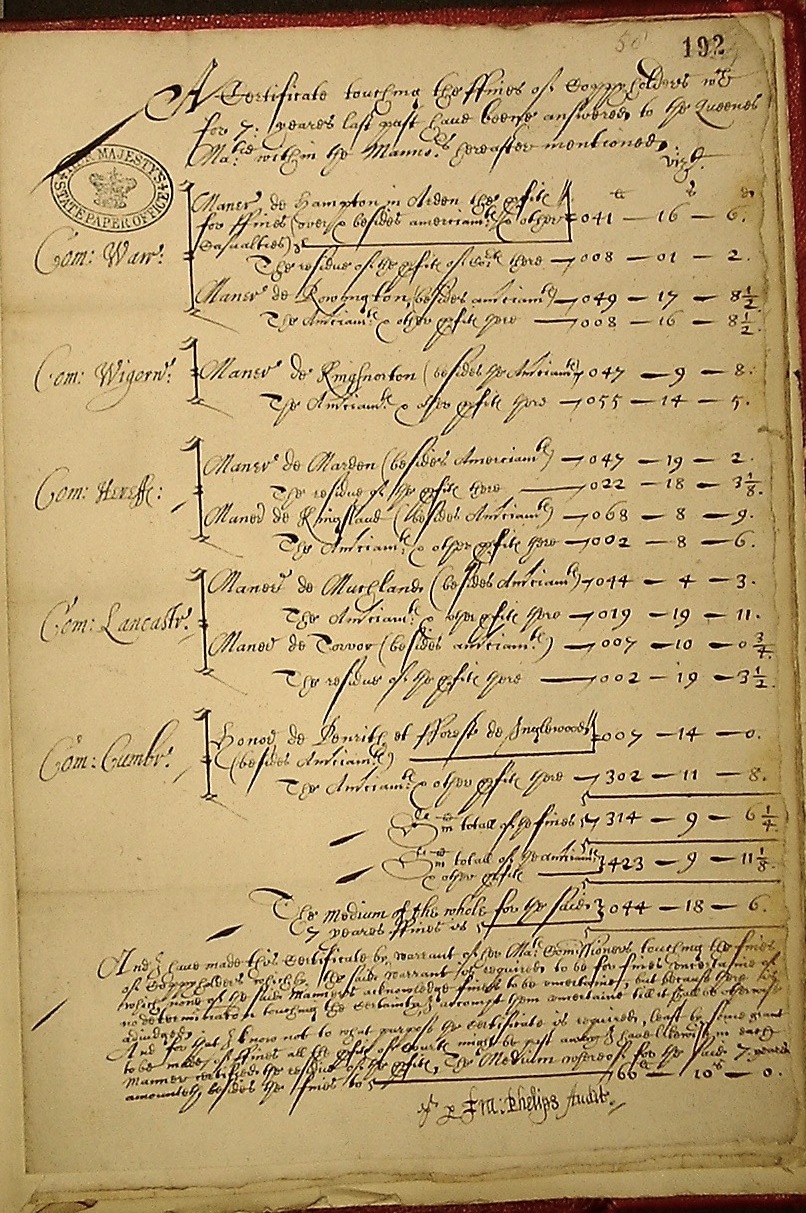 50 192
A Certificate touching the ffines of Coppyholders wch
for 7: yeares last past have beene answered to the Queenes
Ma:tie within the Mannrs. hereafter mentioned, vizt.
HER MAJESTY'S
STATE PAPER OFFICE
li s d
Com: Warr:
Manerr de Hampton in Arden the pfitt
for ffines (over & besides amerciamts & other 041 — 16 — 6.
Casualties)
The residue of the pfitt of Cort there — 008 — 01 — 2.
Manerr de Rowington (besides amciamts) — 049 — 17 — 8 1/2
The Amciamts & other pfitt there — 008 — 16 — 8 1/2.
Com: Wigorn:
Manerr de Kingsnorton (besides the Amciamts) 047 — 9 — 8.
The Amciamts & other pfitt there — 055 — 14 — 5.
Com: Hereff:
Manerr de Marden (besides Amerciamts) — 047 — 19 — 2.
The residue of the pfitt there — 022 — 18 — 3 1/8.
Maner de Kingsland (besides Amciamts) — 068 — 8 — 9.
The Amciamts & other pfitt there — 002 — 8 — 6.
Com: Lancastr:
Manerr de Muchland (besides Amciamts) — 044 — 4 — 3.
The Amciamts & other pfitt there — 019 — 19 — 11.
Maner de Torvor (besides amciamts) — 007 — 10 — 0 3/4.
The residue of the pfitt there — 002 — 19 — 3 1/2.
Com: Cumbr:
Honor de Penrith et fforest de Inglewood 007 — 14 — 0.
(besides Amciamts)
The Amciamts & other pfitt there — 302 — 11 — 8.
totall of the fines 314 — 9 — 6 1/4.
totall of the amciamts 423 — 9 — 11 1/8.
& other pfitt
The Medium of the whole for the said 044 — 18 — 6.
7 yeares ffines is
And I have made this Certificate by warrant of her Mats Comissioners touching the fines
of Coppyholders which by the said warrant is required to be for fines uncertaine of
which none of the said Mannors acknowledge fines to be uncertaine, but because there is
no determination touching the Certainty I accompt them uncertaine till it shall be otherwise
adiudged.
And for that I know not to what purpose the Certificate is required, least by some grant
to be made of ffines all the pfitt of Courts might be past away I have likewise in each
Mannor certified the residue of the pfitt, The Medium whereof for the said 7 yeares
amounteth besides the fines to 66li — 10s — 0.
p Fra: Phelips Audit.